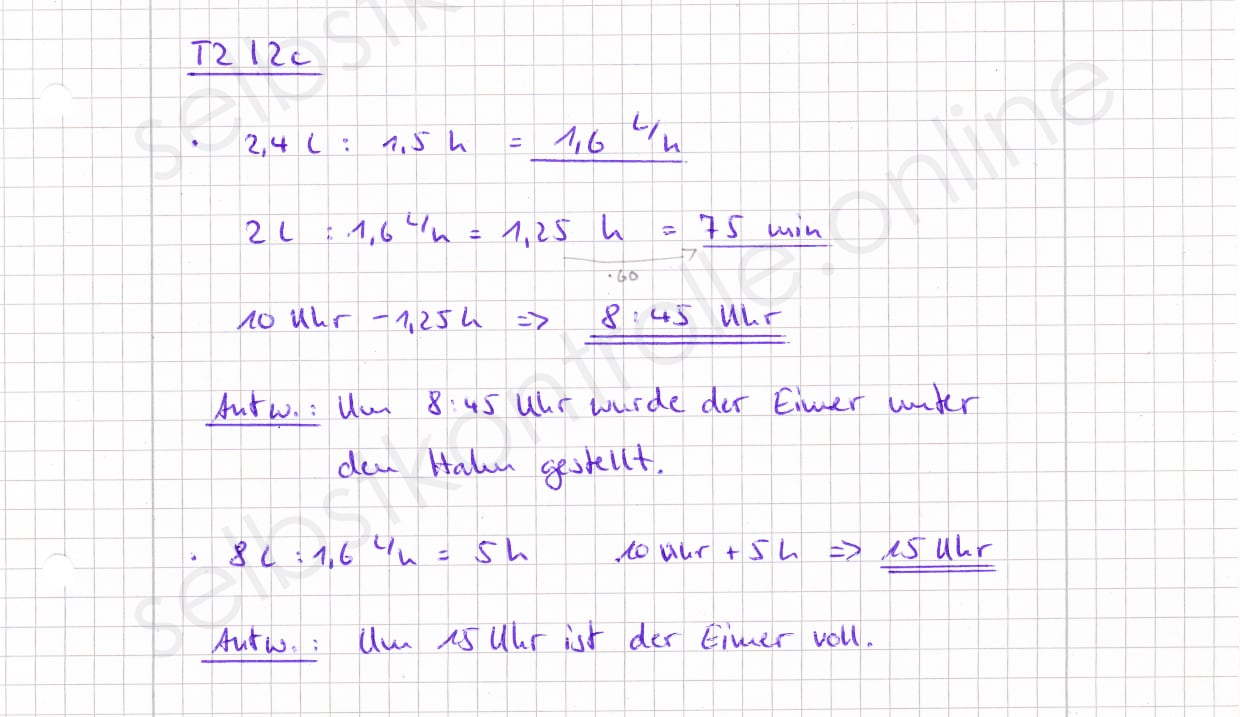 T2 12c
· 2,4 l : 1,5 h = 1,6 L/h
2 l : 1,6 L/h = 1,25 h = 75 min
·60
10 Uhr - 1,25 h => 8:45 Uhr
Antw.: Um 8:45 Uhr wurde der Eimer unter
den Hahn gestellt.
· 8 l : 1,6 L/h = 5 h 10 Uhr + 5 h => 15 Uhr
Antw.: Um 15 Uhr ist der Eimer voll.
selbstkontrolle.online